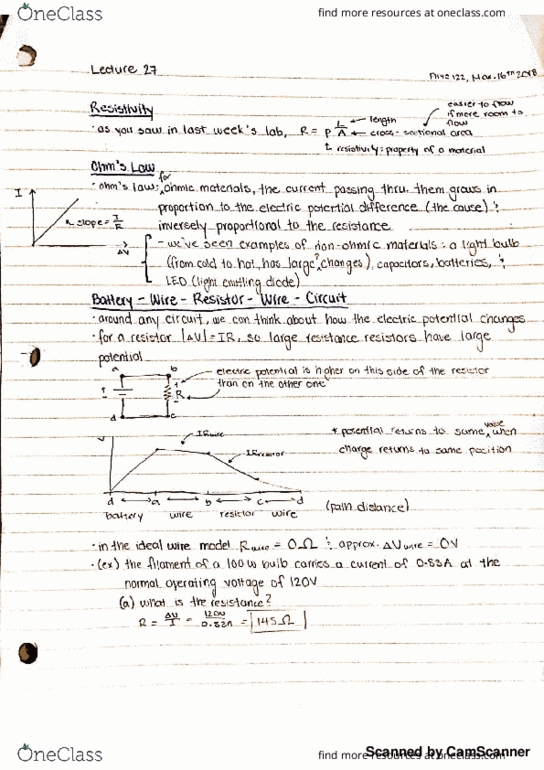 OneClass
find more resources at oneclass.com
Lecture 27
Mar. 16th 2018
Resistivity
easier to flow
if more room to
flow
· as you saw in last week's lab, R = ρ L/A ← length
← cross-sectional area
resistivity: property of a material
Ohm's Law
· ohm's law: for ohmic materials, the current passing thru. them grows in
proportion to the electric potential difference (the cause) &
inversely proportional to the resistance
I
slope = I/R
ΔV
- we've seen examples of non-ohmic materials: a light bulb
(from cold to hot, has large R changes), capacitors, batteries, &
LED (light emitting diode)
Battery - Wire - Resistor - Wire - Circuit
· around any circuit, we can think about how the electric potential changes
· for a resistor |ΔV| = IR, so large resistance resistors have large
potential
a b
electric potential is higher on this side of the resistor
than on the other one
I + R
d c
V
IRwire
IRresistor
* potential returns to same value when
charge returns to same position
d ↔ a ↔ b ↔ c ↔ d
(path distance)
battery wire resistor wire
· in the ideal wire model Rwire = 0Ω & approx. ΔVwire = 0V
· (ex) the filament of a 100W bulb carries a current of 0.83A at the
normal operating voltage of 120V
(a) what is the resistance?
R = ΔV/I = 120V/0.83A = 145Ω
OneClass
find more resources at oneclass.com
Scanned by CamScanner